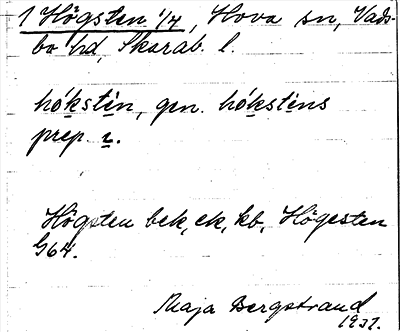 1 Högsten 1/4, Hova sn, Vads-
bo hd, Skarab. l.
hökstén, gen. höksténs
prep. ı.
Högsten bek, ek, kb, Högesten
G64.
Maja Bergstrand
1937.